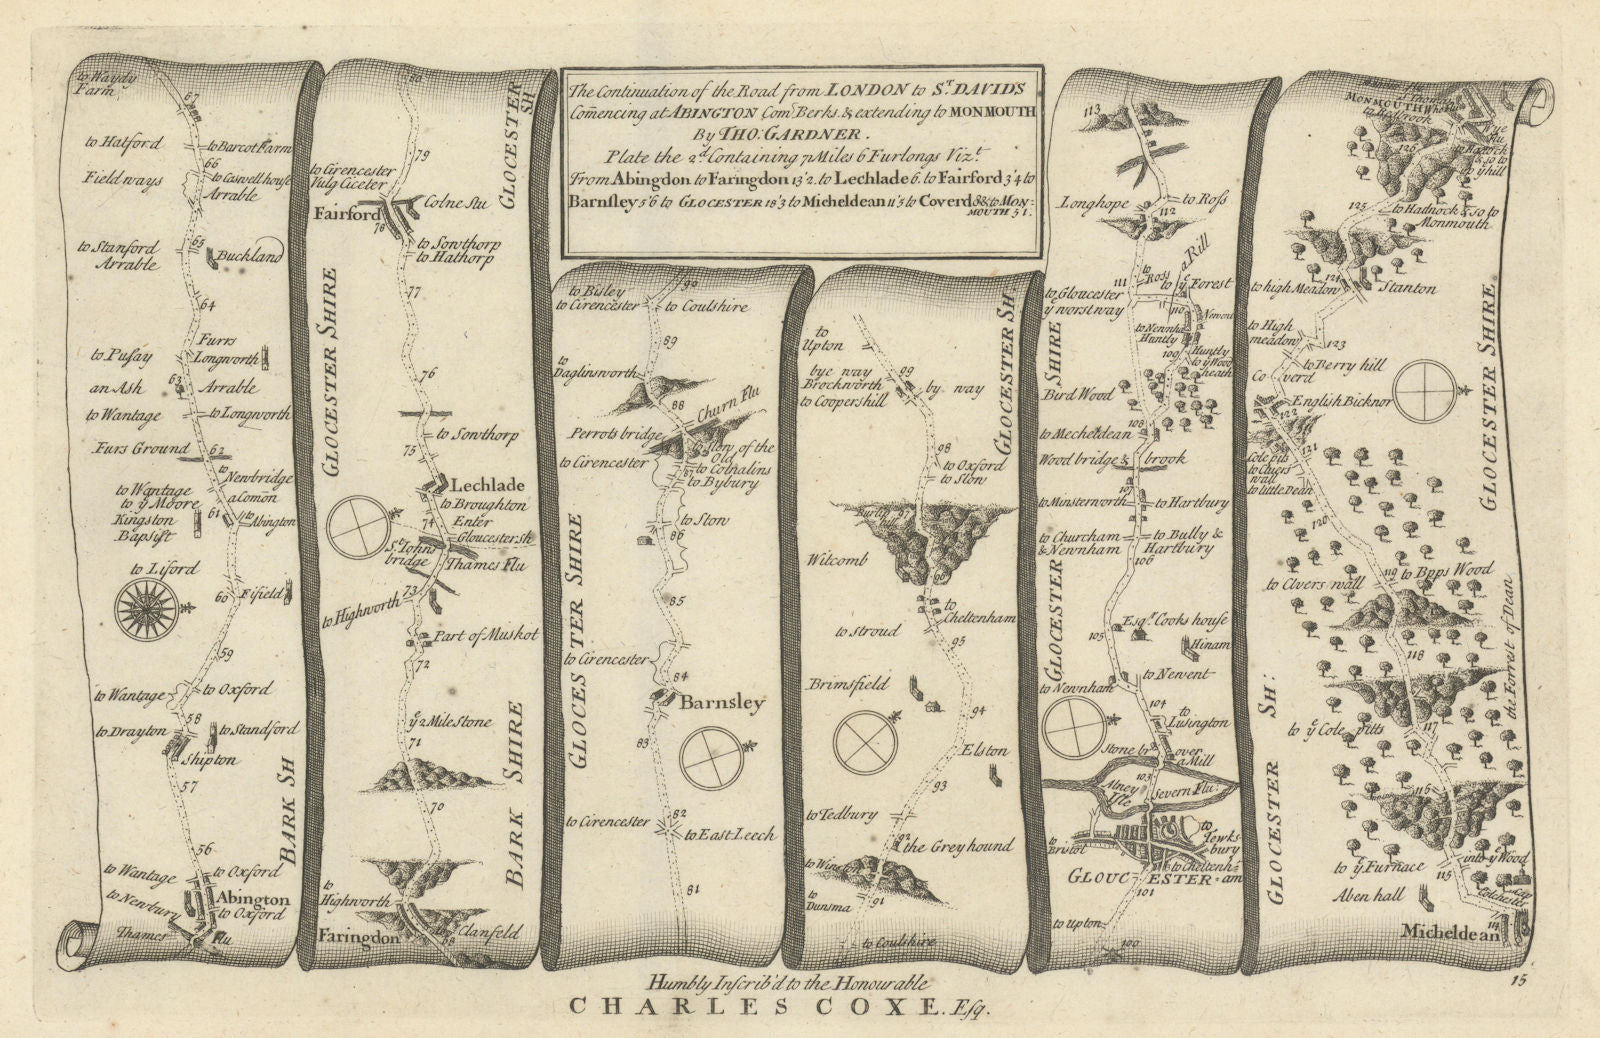 The Continuation of the Road from LONDON to Sᵀ DAVIDS
Com̃encing at ABINGTON Comᵗ Berks. & extending to MONMOUTH
By THO: GARDNER.
Plate the 2ᵈ Containing 71 Miles 6 Furlongs Vizᵗ.
From Abingdon to Faringdon 13'2. to Lechlade 6. to Fairford 3'4 to
Barnsley 5'6 to GLOCESTER 18'3 to Micheldean 11'5 to Coverd 8 & to MON:
MOUTH 5 1.
to Waydy
Farm
67
to Hatford
to Barcot Farm
66
Field ways
to Caswell house
Arrable
to Stanford
Arrable
65
Buckland
64
Furrs
to Pusay
Longworth
63
an Ash
Arrable
to Wantage
to Longworth
Furs Ground
62
to
Newbridge
a Comon
to Wantage
to yᵉ Moore
Kingston
Bapsift
61
to
Abington
to Liford
60
Fifield
59
to Wantage
to Oxford
58
to Drayton
to Standford
Shipton
57
BARK SH
56
to Wantage
to Oxford
to Newbury
Abington
to Oxford
Thames
Flu
80
GLOCESTER
SH
79
to Cirencester
Vulg Ciceter
Fairford
Colne flu
78
to Sowthorp
to Hathorp
77
GLOCESTER SHIRE
76
to Sowthorp
75
Lechlade
to Broughton
74
Enter
Gloucester sh
Sᵗ Johns
bridge
Thames Flu
73
to Highworth
Part of Muskot
72
yᵉ 2 Mile Stone
71
BARK SHIRE
70
to
Highworth
Faringdon
to Clanfeld
69
90
to Bisley
to Cirencester
to Coulshire
89
to
Daglinsworth
88
Churn Flu
Perrots bridge
to Stow of the
Old
to Cirencester
87
to Cobnalins
to Bybury
to Stow
86
GLOCESTER SHIRE
85
to Cirencester
84
Barnsley
83
82
to Cirencester
to East Leech
81
to
Upton
bye way
Brockworth
to Coopershill
99
by way
GLOCESTER SH:
98
to Oxford
to Stow
97
Witcomb
96
to
Cheltenham
to Stroud
95
Brimsfield
94
Elston
93
to Tedbury
92
the Greyhound
to
Dunsma
91
to Coulshire
113
Longhope
to Ross
112
a Rill
to
Ross
111
to
yᵉ Forest
to Gloucester
yᵉ worst way
110
Newent
to Newnha
Huntly
109
Huntly
to yᵉ Wood
heath
Bird Wood
108
to Mecheldean
Wood bridge &
brook
107
to Minsterworth
to Hartbury
to Churcham
& Newnham
to Bully &
Hartbury
106
GLOCESTER SHIRE
Esqʳ Cooks house
105
Hinam
to Newnham
to Newent
104
to
Lusington
Stone br
over
a Mill
103
Alney
Isle
Severn Flu.
to
Bristol
to
Tewks-
bury
to Cheltenh
am
GLOUCESTER
101
to Upton
100
MONMOUTH
Wye
flu
to Hadock
& so to
yᵉ hill
126
125
to Hadnock & so to
Monmouth
124
to high Meadow
Stanton
to High
meadow
123
to Berry hill
Coverd
English Bicknor
122
121
Cole pits
to Cluers
wall
to little Dean
120
GLOCESTER SHIRE
119
to Clvers wall
to Bpps Wood
118
the Forrest of Dean
117
to yᵉ Cole pitts
GLOCESTER SH:
116
to yᵉ Furnace
into yᵉ Wood
115
Aben hall
to Glocester
114
Micheldean
15
Humbly Inscrib'd to the Honourable
CHARLES COXE. Esq.